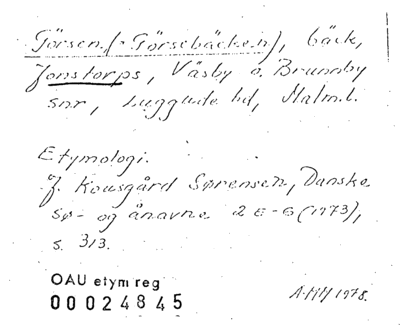 Görsen (: Görsebäcken), bäck,
Jonstorps, Väsby o. Brunnby
snr, Luggude hd, Malm. l.
Etymologi.
J. Kousgård Sørensen, Danske
sø- og ånavne 2 E-G (1973),
s. 313.
OAU etym reg
00024845
1978.